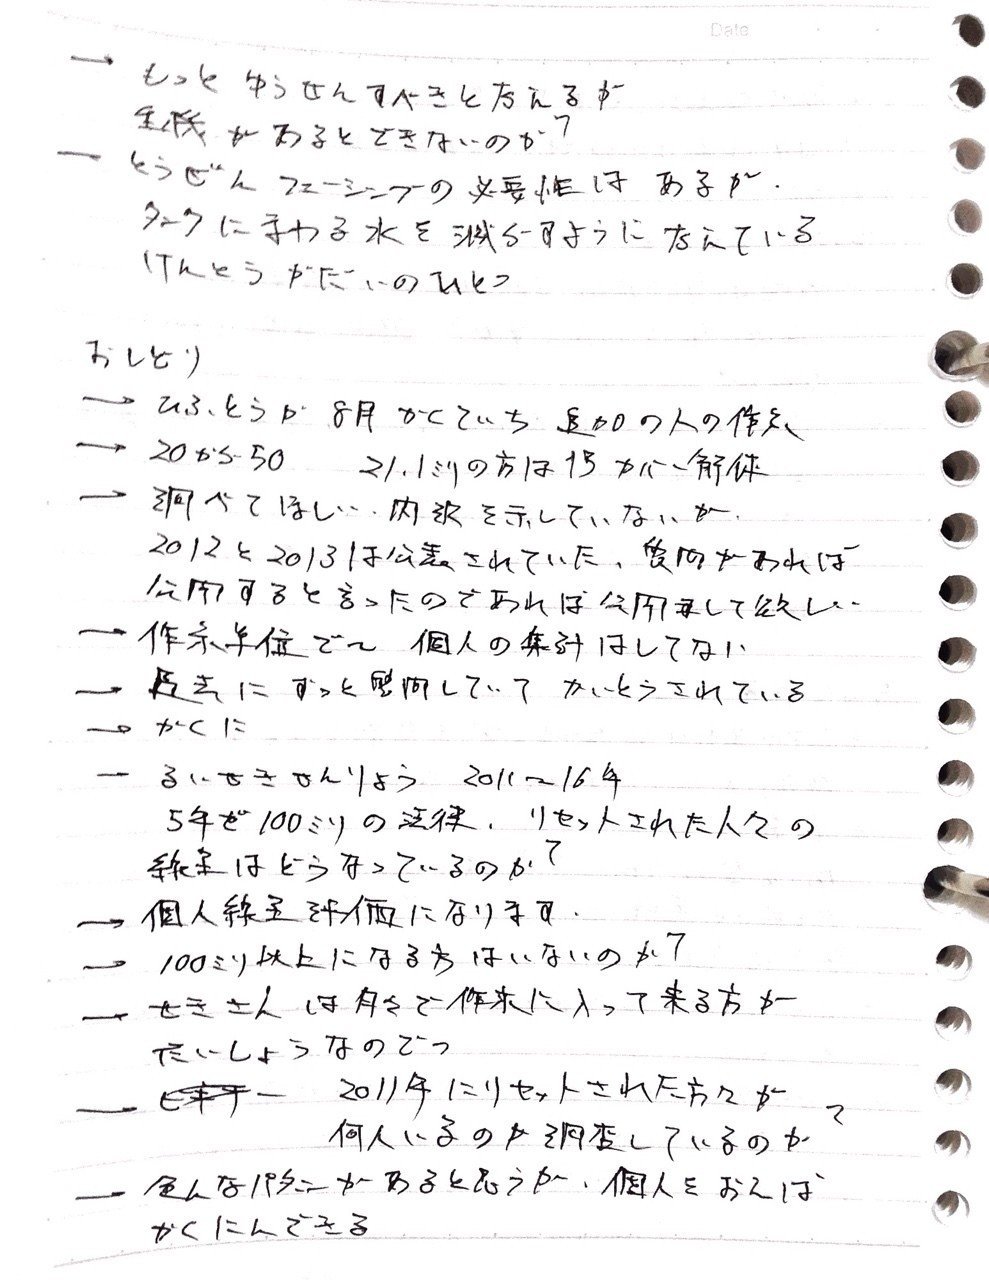 Date
→ もっと ゆうせんすべきと考えるが
があるとできないのか?
ー とうぜん フェーシングの必要性は あるが、
タンクにまわる水を減らすように考えている
けんとうがだいのひとつ
おしとり
→ ひふ、とうが 8月 かくていち 追加の人の作業
→ 20から50 21.1ミリの方は 1号 カバー解体
→ 調べてほしい、内訳を示していないが、
2012と2013は公表されていた、質問があれば
公開すると言ったのであれば公開して欲しい
→ 作業単位で 個人の集計はしてない
→ 過去にずっと質問していて かいとうされている
→ かくに
ー るいせきせんりょう 2011〜16年
5年で100ミリの法律、リセットされた人々の
線量はどうなっているのか?
→ 個人線量評価になります、
→ 100ミリ以上になる方はいないのか?
→ せきさんは 方が
たいしょうなのでっ
→ 2011年にリセットされた方々が
何人いるのか調査しているのか?
→ 色んなパタンがあると思うが、個人をおえば
かくにんできる